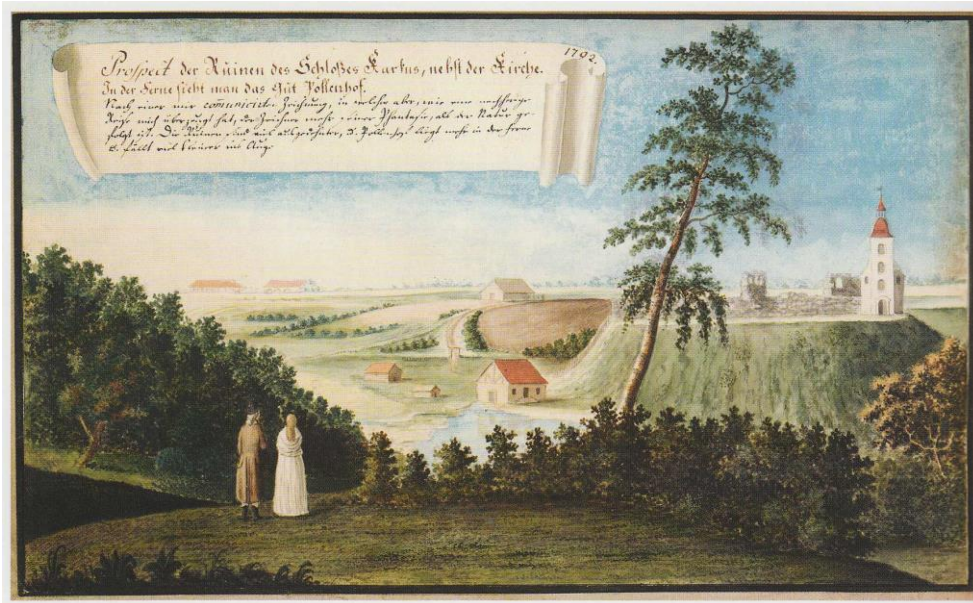 1792.
Prospect der Ruinen des Schloßes Karkus, nebst der Kirche.
In der Ferne sieht man das Gut Pollenhof.
Nach einer mir communicirten Zeichnung, in welcher aber, wie eine nachherige
Reise mich überzeugt hat, der Zeichner mehr seiner Phantasie, als der Natur ge-
folgt ist. Die Ruinen sind viel ausgedehnter, u. Pollenhof liegt mehr in der Ferne
u. fällt viel kleiner ins Auge